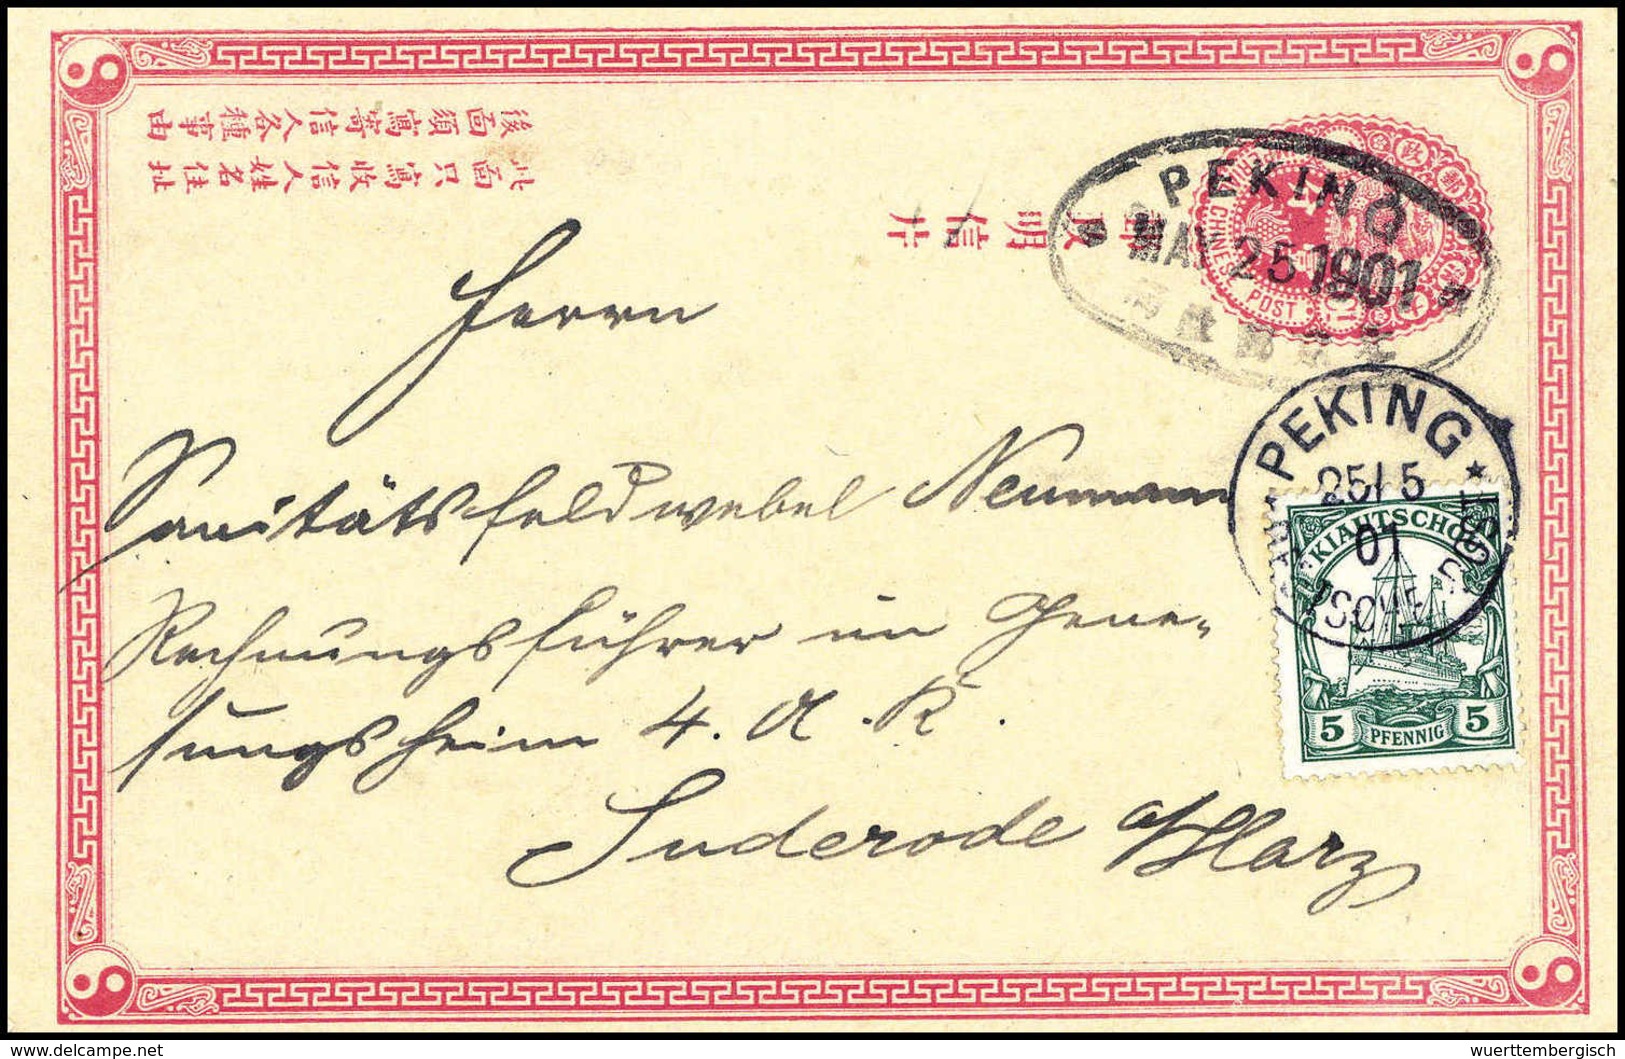 後面須寫寄信人各種事由
此面只寫收信人姓名住址
郵政明信片
CHINESE
POST
PEKING
MAY 25 1901
PEKING
25/5
01
KIAUTSCHOU
5 PFENNIG 5
Herrn
Sanitätsfeldwebel Neumann
Rechnungsführer im Gene-
sungsheim 4. A. K.
Suderode a/Harz
©www.delcampe.net
wuerttembergisch